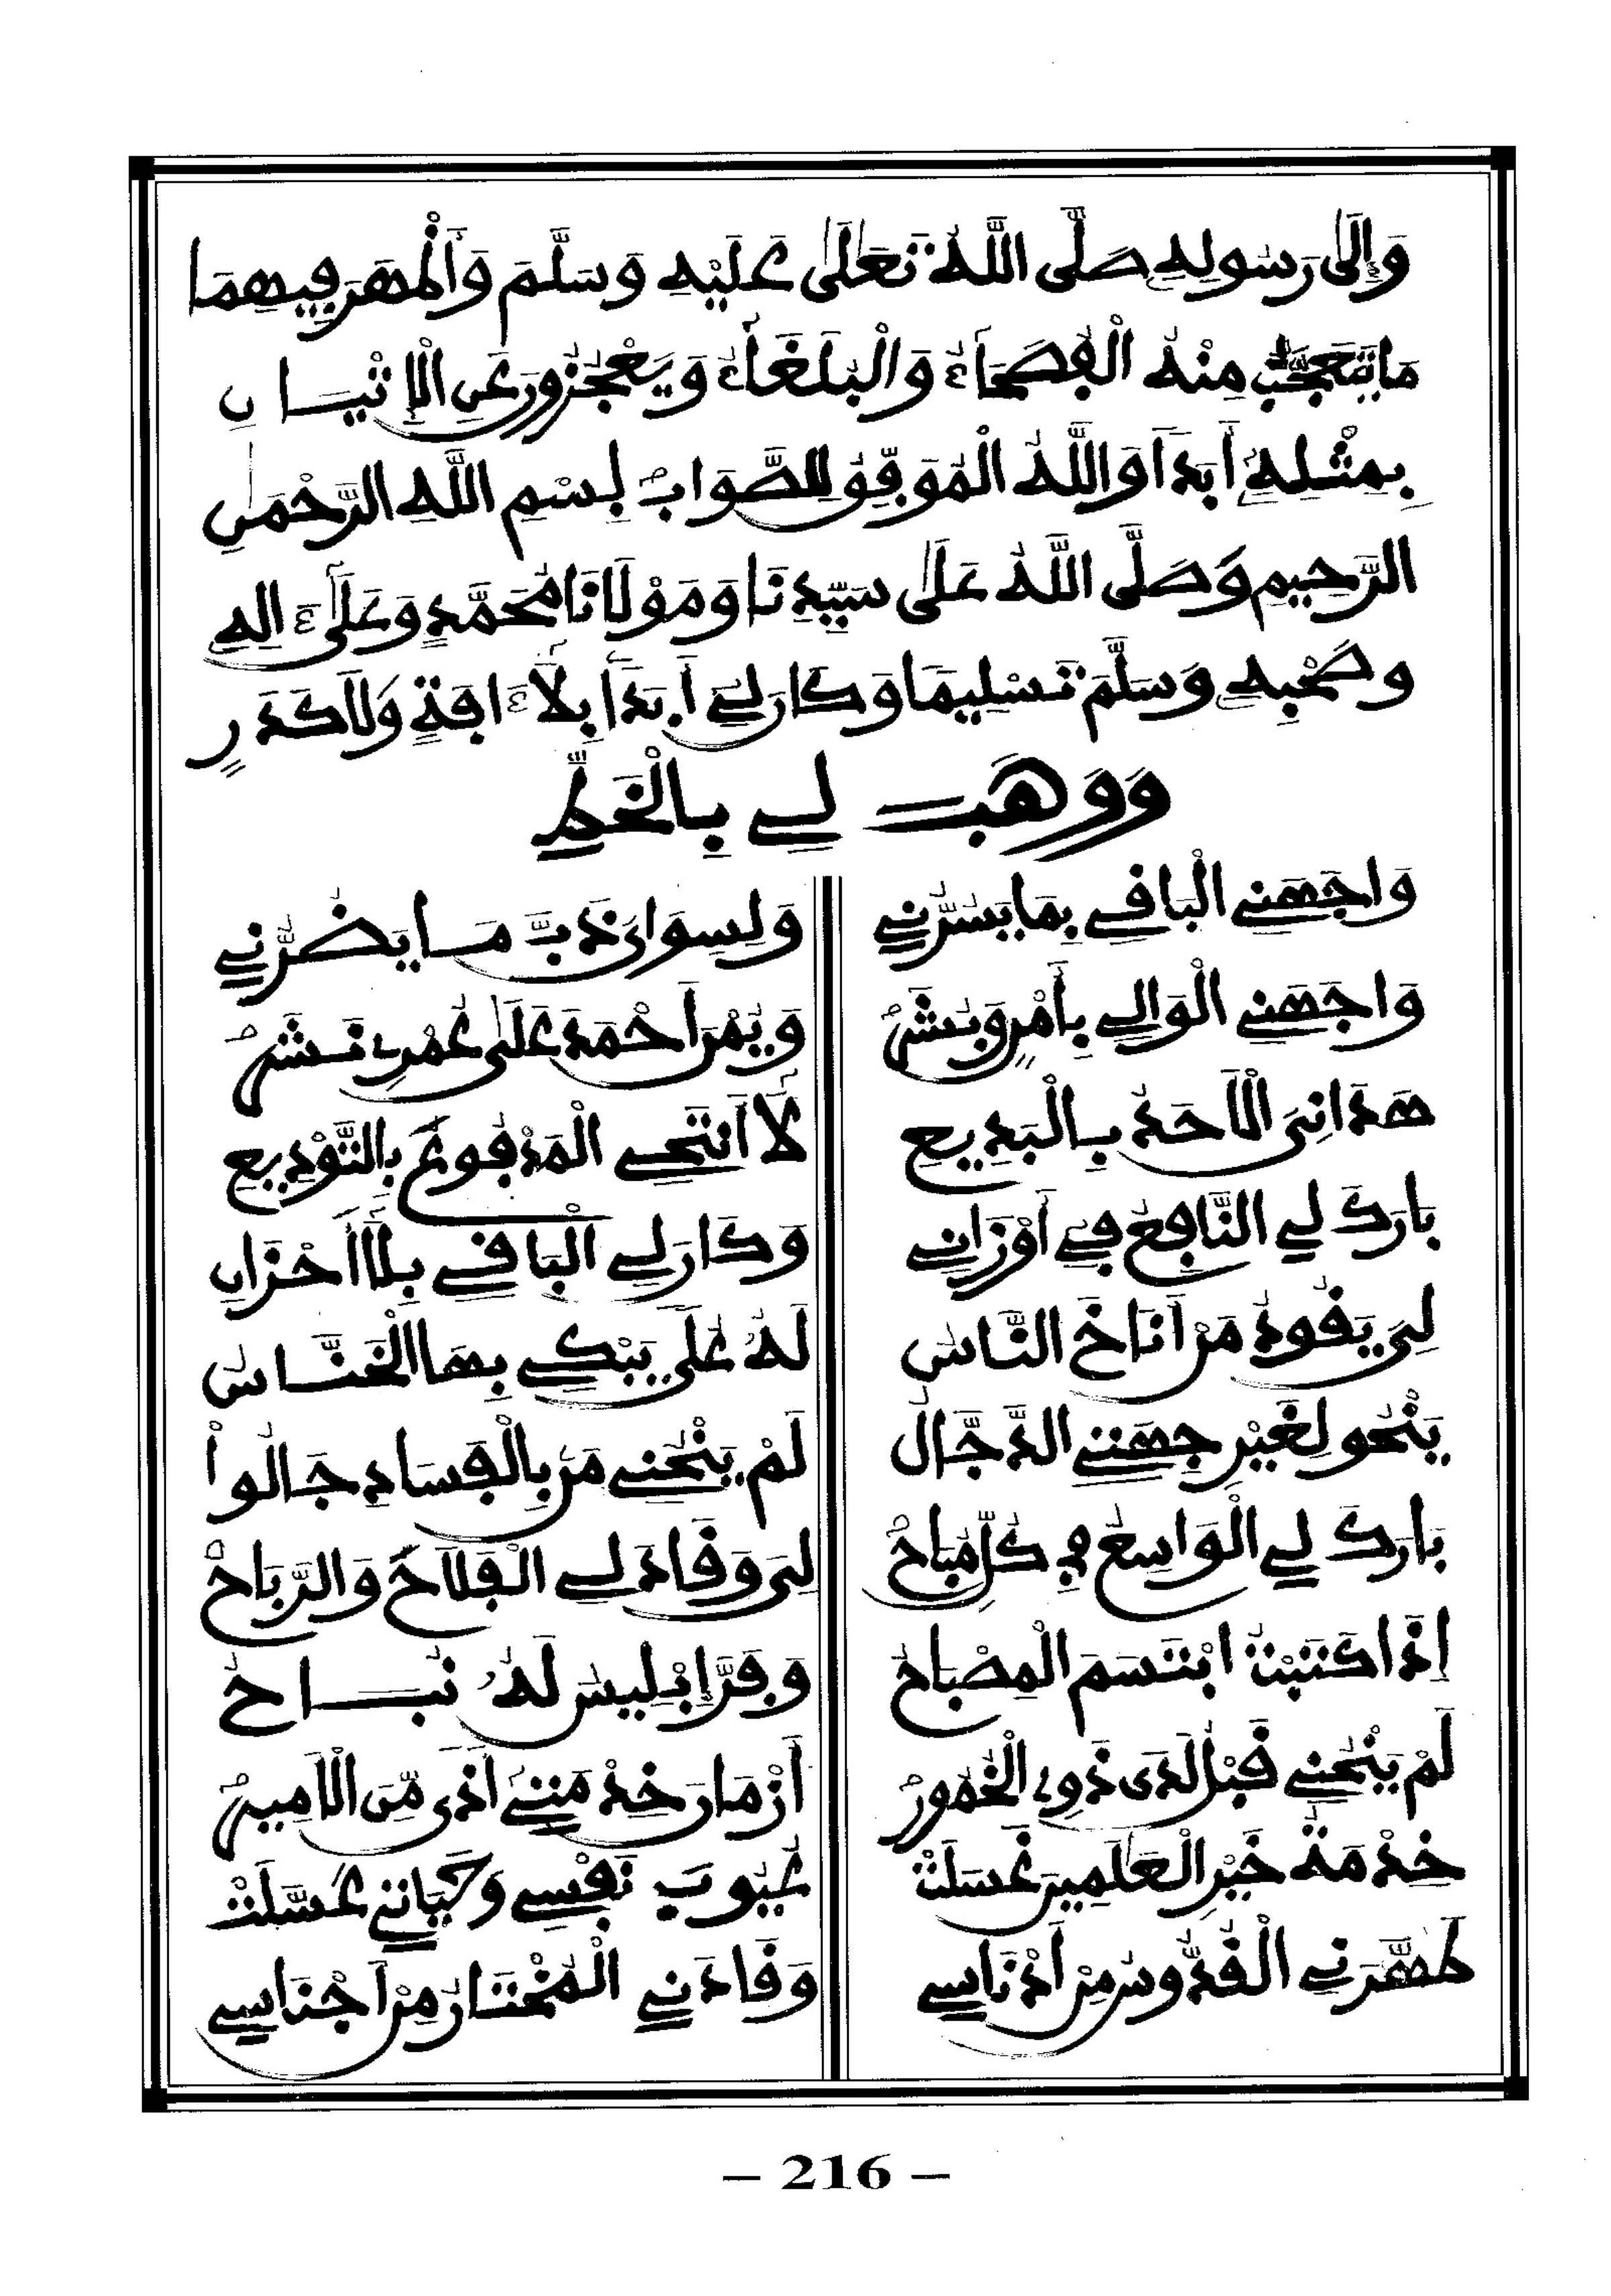 وَإِلَىٰ رَسُولِهِ صَلَّى اللَّهُ تَعَالَىٰ عَلَيْهِ وَسَلَّمَ وَأَظْهَرَ فِيهِمَا
مَا يَتَعَجَّبُ مِنْهُ الْفُصَحَاءُ وَالْبُلَغَاءُ وَيَعْجِزُونَ عَنِ الْإِتْيَانِ
بِمِثْلِهِ أَبَدًا وَاللَّهُ الْمُوَفِّقُ لِلصَّوَابِ بِسْمِ اللَّهِ الرَّحْمَٰنِ
الرَّحِيمِ وَصَلَّى اللَّهُ عَلَىٰ سَيِّدِنَا وَمَوْلَانَا مُحَمَّدٍ وَعَلَىٰ ءَالِهِ
وَصَحْبِهِ وَسَلَّمَ تَسْلِيمًا وَكَانَ لِي أَبَدًا بِلَا ءَافَةٍ وَلَا كَدَرٍ
وَوَهَبَ لِي بِالْخَطِّ
وَاجَهَنِي الْبَاقِي بِمَا يَسُرُّنِي
وَلِسِوَايَ ذَبَّ مَا يَضُرُّنِي
وَاجَهَنِي الْوَالِي بِأَمْنٍ وَبِشَرْ
وَيُمْنُ أَحْمَدَ عَلَىٰ عُمْرِي نَشَرْ
هَدَانِيَ الْأَحَدُ بِالْبَدِيعِ
لَا أَنْتَحِي الْمَدْفُوعَ بِالتَّوْدِيعِ
بَارَكَ لِي النَّافِعُ فِي أَوْزَانِي
وَكَانَ لِي الْبَاقِي بِلَا أَحْزَانِ
لِيَ يَقُودُ مَنْ أَنَاخَ النَّاسُ
لَهُ عُلًى يَبْكِي بِهَا الْخَنَّاسُ
يَنْحُو لِغَيْرِ جِهَتِي الدَّجَّالُ
لَمْ يَنْحُنِي مَنْ بِالْفَسَادِ جَالُوا
بَارَكَ لِي الْوَاسِعُ فِي كُلِّ مُبَاحْ
لِيَ وَقَادَ لِي الْفَلَاحَ وَالرَّبَاحْ
إِذَا كَتَبْتُ ابْتَسَمَ الْمِصْبَاحُ
وَفَرَّ إِبْلِيسُ لَهُ نُبَاحُ
لَمْ يَنْحُنِي قَبْلُ لَدَى ذَوِي الْخُمُورْ
أَزْمَانَ خِدْمَتِي أَذًى مِّنَ الْأَمِيرْ
خِدْمَةُ خَيْرِ الْعَالَمِينَ غَسَلَتْ
عُيُوبَ نَفْسِي وَحَيَاتِي عَسَّلَتْ
طَهَّرَنِي الْقُدُّوسُ مِنْ أَدْنَاسِي
وَقَادَنِي الْمُخْتَارُ مِنْ أَجْنَاسِي
– 216 –